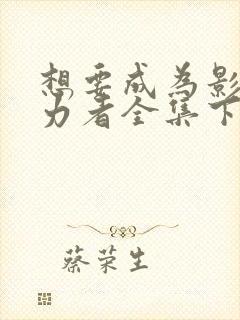 想要成为影
力者全集下
蔡荣生